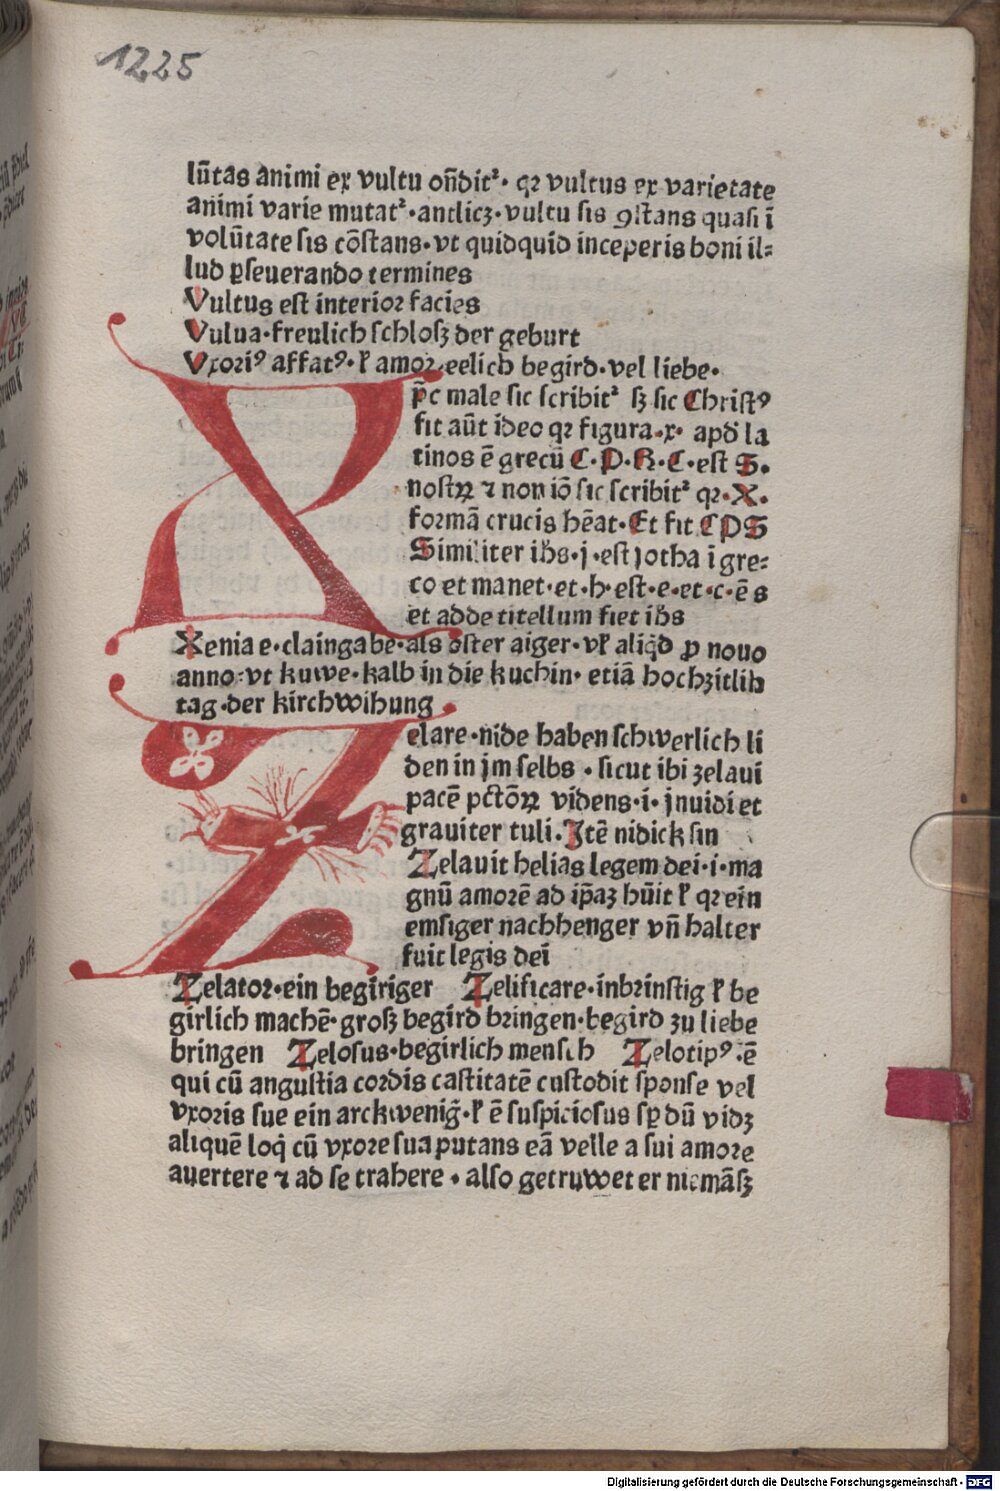 1225
lūtas animi ex vultu oñdit²· qꝛ vultus ex varietate
animi varie mutat²·antlicz·vultu sis ꝯstans quasi ī
volūtate sis cōstans·vt quidquid inceperis boni il⸗
lud ꝑseuerando termines
Vultus est interioꝛ facies
Vulua·freulich schloſz der geburt
Vxoriꝰ affatꝰ·ł amoꝛ·eelich begird·vel liebe·
X p̄c male sic scribit² sꝫ sic Christꝰ
fit aūt ideo qꝛ figura·x· apd̄ la
tinos ē grecū C·P·R·C·est S·
nostꝝ ⁊ non iō sic scribit² qꝛ·X·
formā crucis hēat·Et fit CPS
Similiter ihs·j·est jotha ī gre⸗
co et manet·et·h·est·e·et·c·ē s
et adde titellum fiet ihs
Xenia e·claingabe·als oster aiger·vł aliq̄d ꝓ nouo
anno·vt kuwe·kalb in die kuchin·etiā hochzitlih
tag·der kirchwihung
Z elare·nide haben schwerlich li
den in jm selbs·sicut ibi zelaui
pacē pctōꝝ videns·i·jnuidi et
grauiter tuli.Itē nidick sin
Zelauit helias legem dei·i·ma
gnū amoꝛē ad ip̄aꝫ hūit ł qꝛ ein
emsiger nachhenger vñ halter
fuit legis dei
Zelatoꝛ·ein begiriger Zelificare·inbꝛinstig ł be
girlich machē·groſz begird bꝛingen·begird zu liebe
bringen Zelosus·begirlich mensch Zelotipꝰ·ē
qui cū angustia coꝛdis castitatē custodit sponse vel
vxoris sue ein arckweniḡ·ł ē suspiciosus sꝑ dū vidꝫ
aliquē loq̄ cū vxoꝛe sua putans eā velle a sui amoꝛe
auertere ⁊ ad se trahere·also getruwet er niemāſz
Digitalisierung gefördert durch die Deutsche Forschungsgemeinschaft - DFG